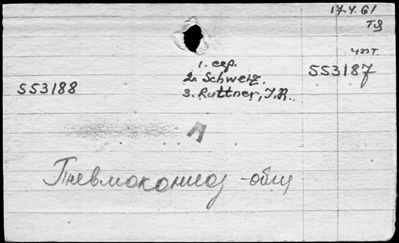 17.4.61
TЯ
чит.
1. сер.
2. Schweiz.
553187
553188
3. Ruttner, J.R.
А
Пневмокониоз - общ